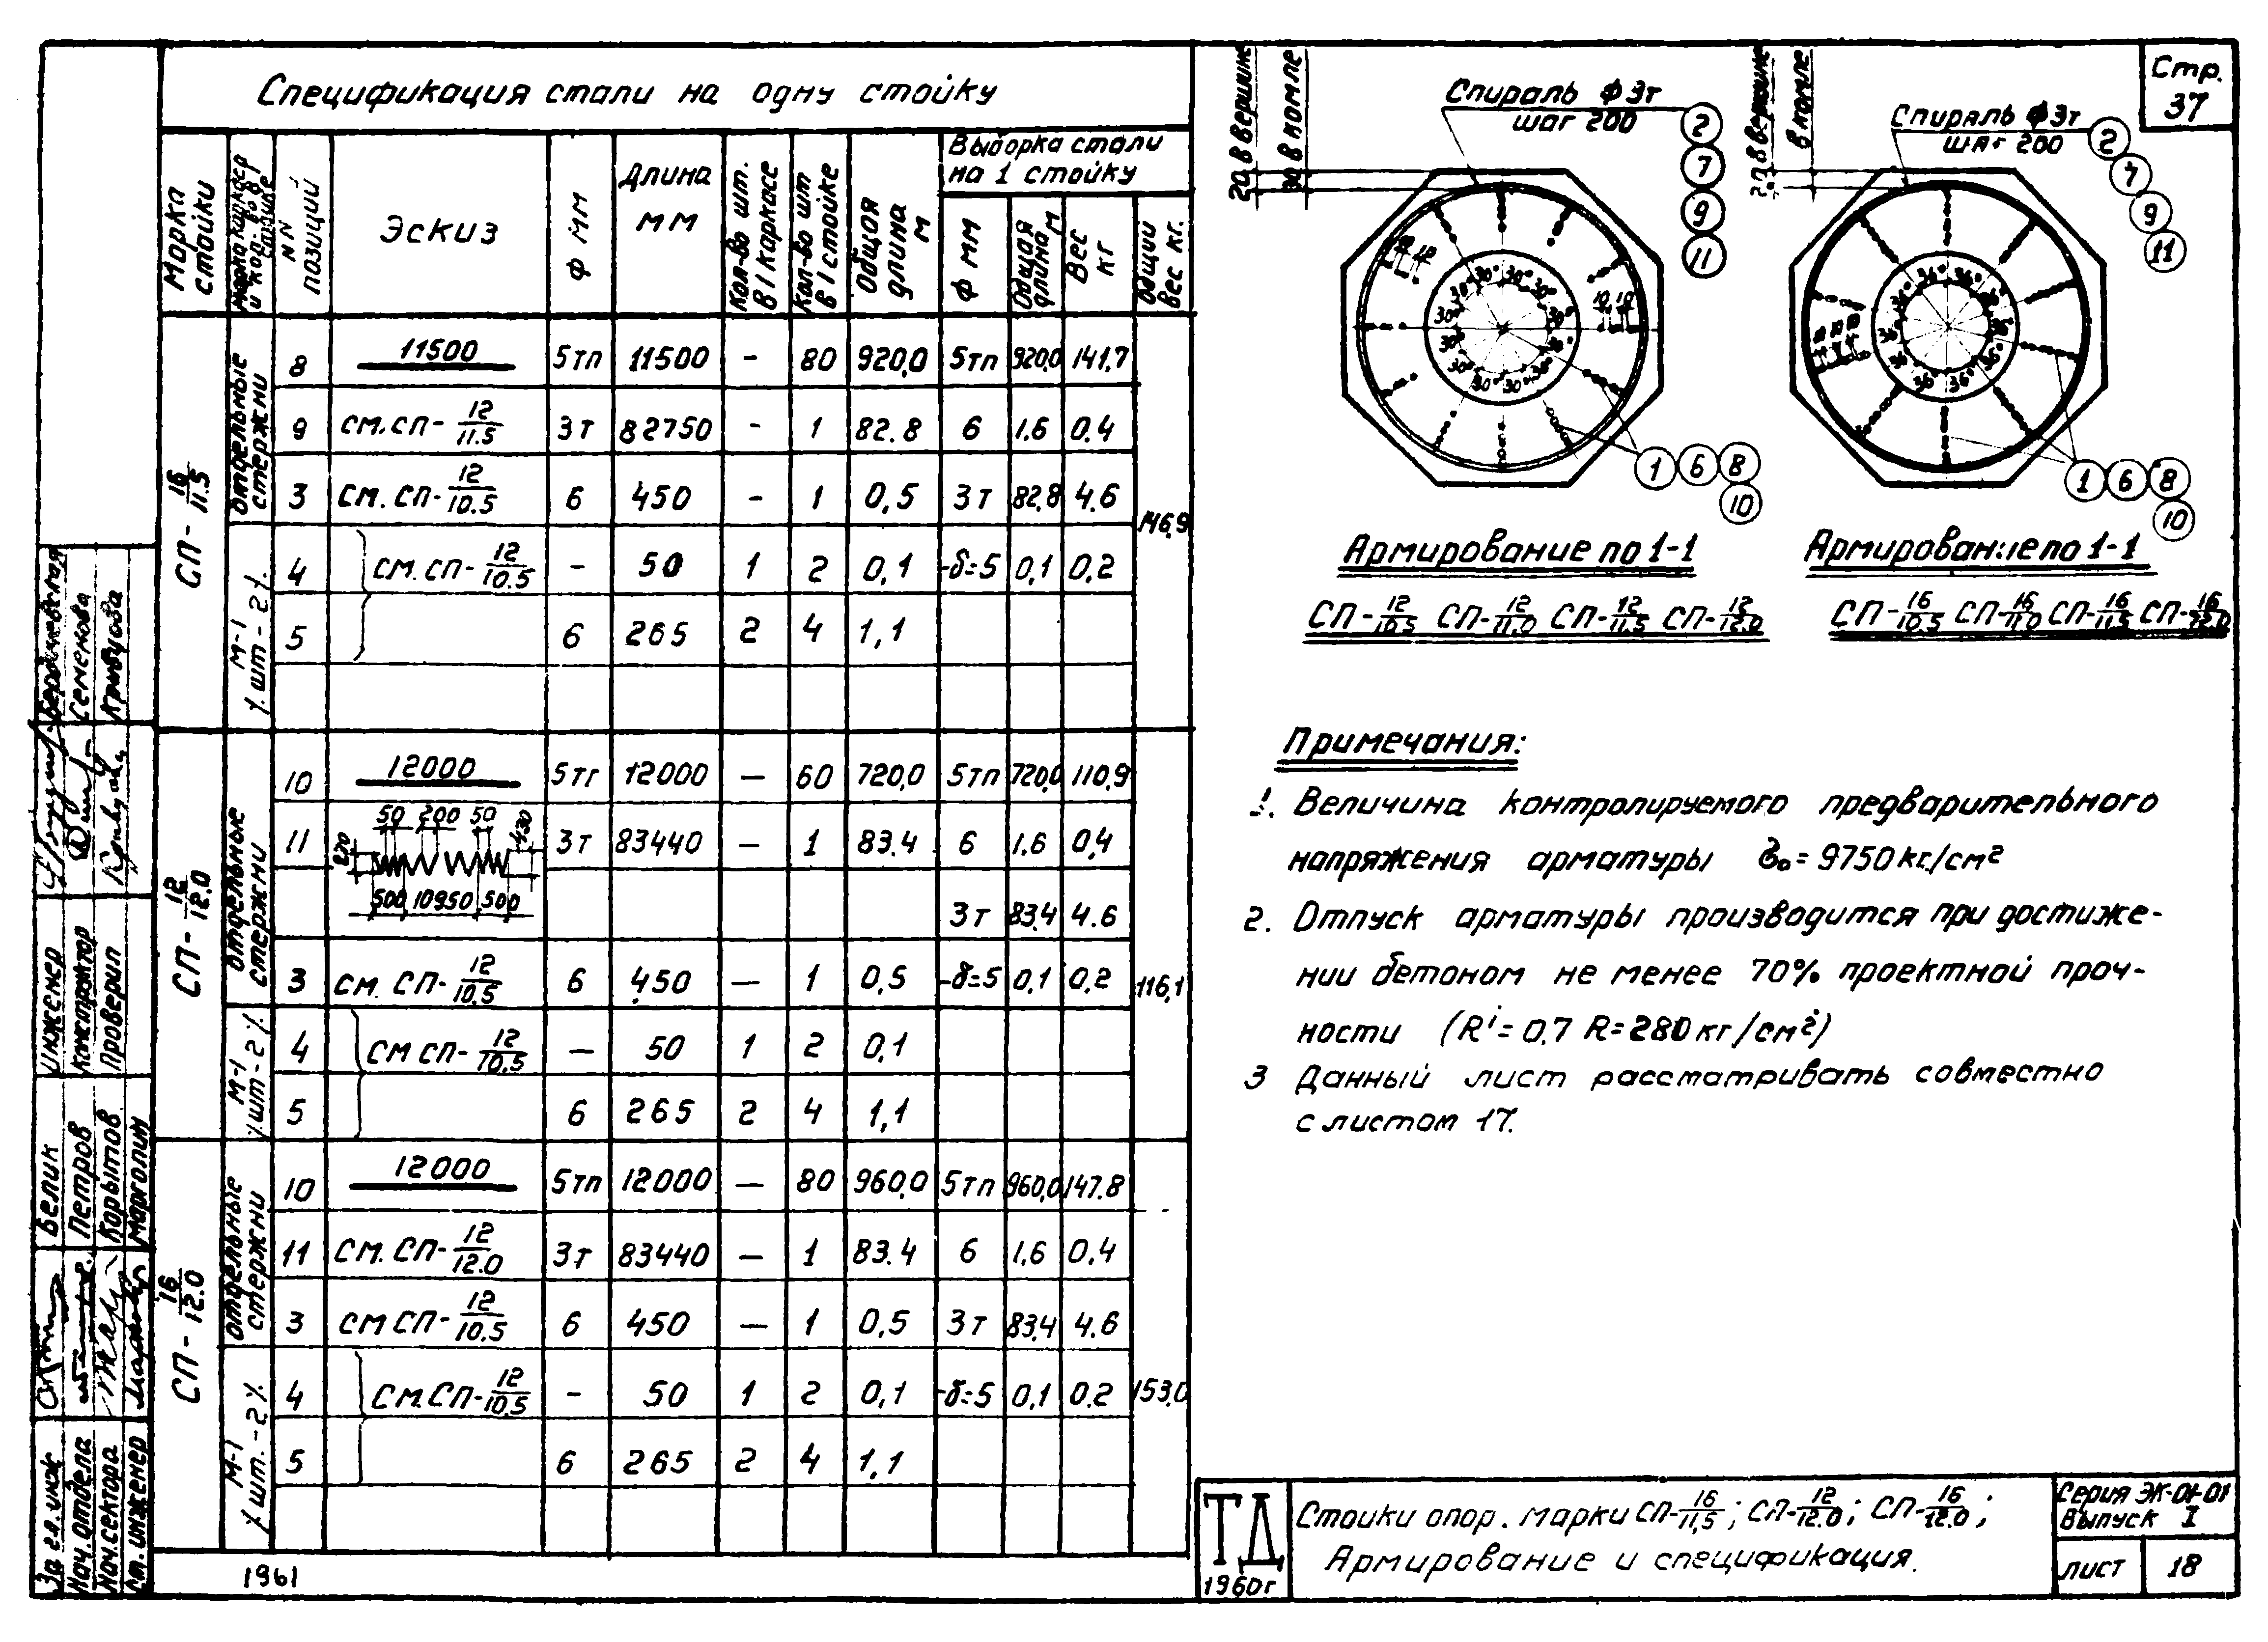 Спецификация стали на одну стойку
Марка стойки
NN позиций
Эскиз
Ф мм
Длина мм
Кол-во шт. в 1 каркасе
Кол-во шт в 1 стойке
Общая длина м
Выборка стали на 1 стойку
Ф мм
Общая длина м
Вес кг
Общий вес кг.
СП-16/11.5
Отдельные стержни
8 11500 5тп 11500 - 80 920,0 5тп 920,0 141,7
9 см.СП-12/11.5 3т 82750 - 1 82.8 6 1.6 0.4
3 см.СП-12/10.5 6 450 - 1 0,5 3т 82,8 4.6
146,9
М-1 шт-2
4 см.СП-12/10.5 - 50 1 2 0,1 -δ=5 0,1 0,2
5 6 265 2 4 1,1
СП-12/12.0
Отдельные стержни
10 12000 5тг 12000 — 60 720,0 5тп 720,0 110,9
11 50 200 50 3т 83440 — 1 83.4 6 1.6 0,4
500 10950 500 3т 83.4 4.6
3 см. СП-12/10.5 6 450 — 1 0,5 -δ=5 0,1 0,2
116,1
М-1 шт-2
4 см СП-12/10.5 — 50 1 2 0,1
5 6 265 2 4 1,1
СП-16/12.0
Отдельные стержни
10 12000 5тп 12000 — 80 960,0 5тп 960,0 147.8
11 см. СП-12/12.0 3т 83440 — 1 83.4 6 1,6 0,4
3 см СП-12/10.5 6 450 — 1 0,5 3т 83.4 4.6
М-1 шт.-2
4 см.СП-12/10.5 - 50 1 2 0,1 -δ=5 0,1 0.2
153,0
5 6 265 2 4 1,1
1961
Инженер
Конструктор
Проверил
Семенова
Кривцова
Белик
Петров
Корытов
Марголин
Нач. отдела
Нач. сектора
Ст. инженер
20 в вершине
30 в комле
Спираль Ф 3т
шаг 200
2
7
9
11
30°
10 10
1 6 8
10
Армирование по 1-1
СП-12/10.5 СП-12/11.0 СП-12/11.5 СП-12/12.0
в вершине
в комле
Спираль Ф 3т
шаг 200
2
7
9
11
36°
1 6 8
10
Армирование по 1-1
СП-16/10.5 СП-16/11.0 СП-16/11.5 СП-16/12.0
Стр.
37
Примечания:
1. Величина контролируемого предварительного
напряжения арматуры σо=9750кг/см²
2. Отпуск арматуры производится при достиже-
нии бетоном не менее 70% проектной проч-
ности (R'=0,7 R=280кг/см²)
3 Данный лист рассматривать совместно
с листом 17.
ТД
1960г
Стойки опор. марки СП-16/11,5; СП-12/12.0; СП-16/12.0;
Армирование и спецификация.
Серия ЭК-01-01
Выпуск I
лист 18